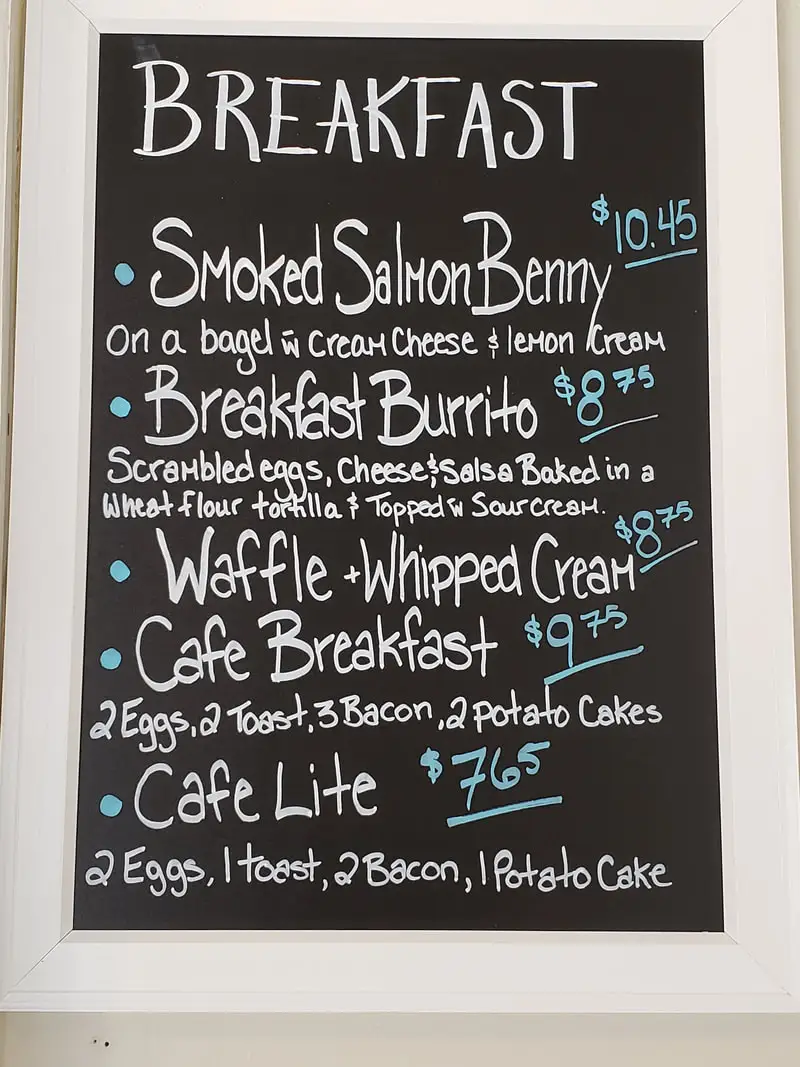 BREAKFAST
$10.45
• Smoked Salmon Benny
On a bagel w̄ Cream Cheese & lemon Cream
• Breakfast Burrito $8 75
Scrambled eggs, Cheese & Salsa Baked in a
Wheat flour tortilla & Topped w̄ Sour cream.
• Waffle + Whipped Cream $8 75
• Cafe Breakfast $9 75
2 Eggs, 2 Toast, 3 Bacon, 2 potato Cakes
• Cafe Lite $7 65
2 Eggs, 1 toast, 2 Bacon, 1 Potato Cake